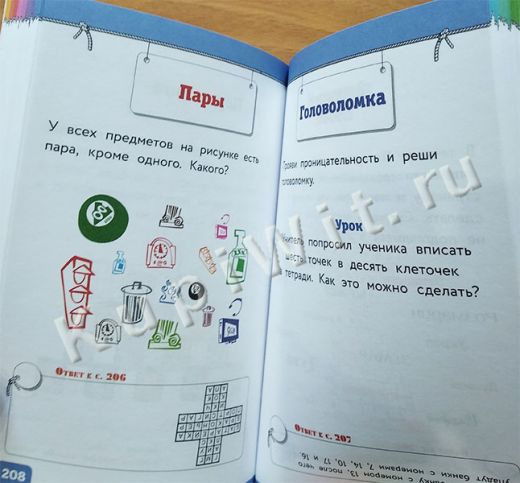 Пары
У всех предметов на рисунке есть
пара, кроме одного. Какого?
Ответ к с. 206
208
Головоломка
Прояви проницательность и реши
головоломку.
Урок
Учитель попросил ученика вписать
шесть точек в десять клеточек
тетради. Как это можно сделать?
Ответ к с. 207
упадут банки с номерами 7, 14, 10, 17 и 16.
банку с номером 13, после чего
kupiwit.ru